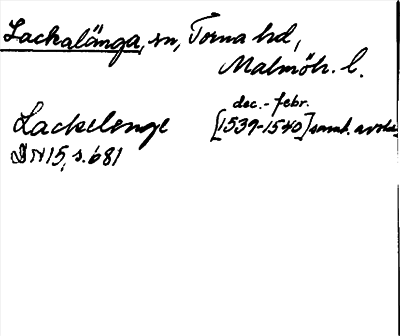 Lackalänga, sn, Torna hd,
Malmöh. l.
Lackelenge
dec.-febr.
[1539-1540] samt. avskr.
DN 15, s. 681